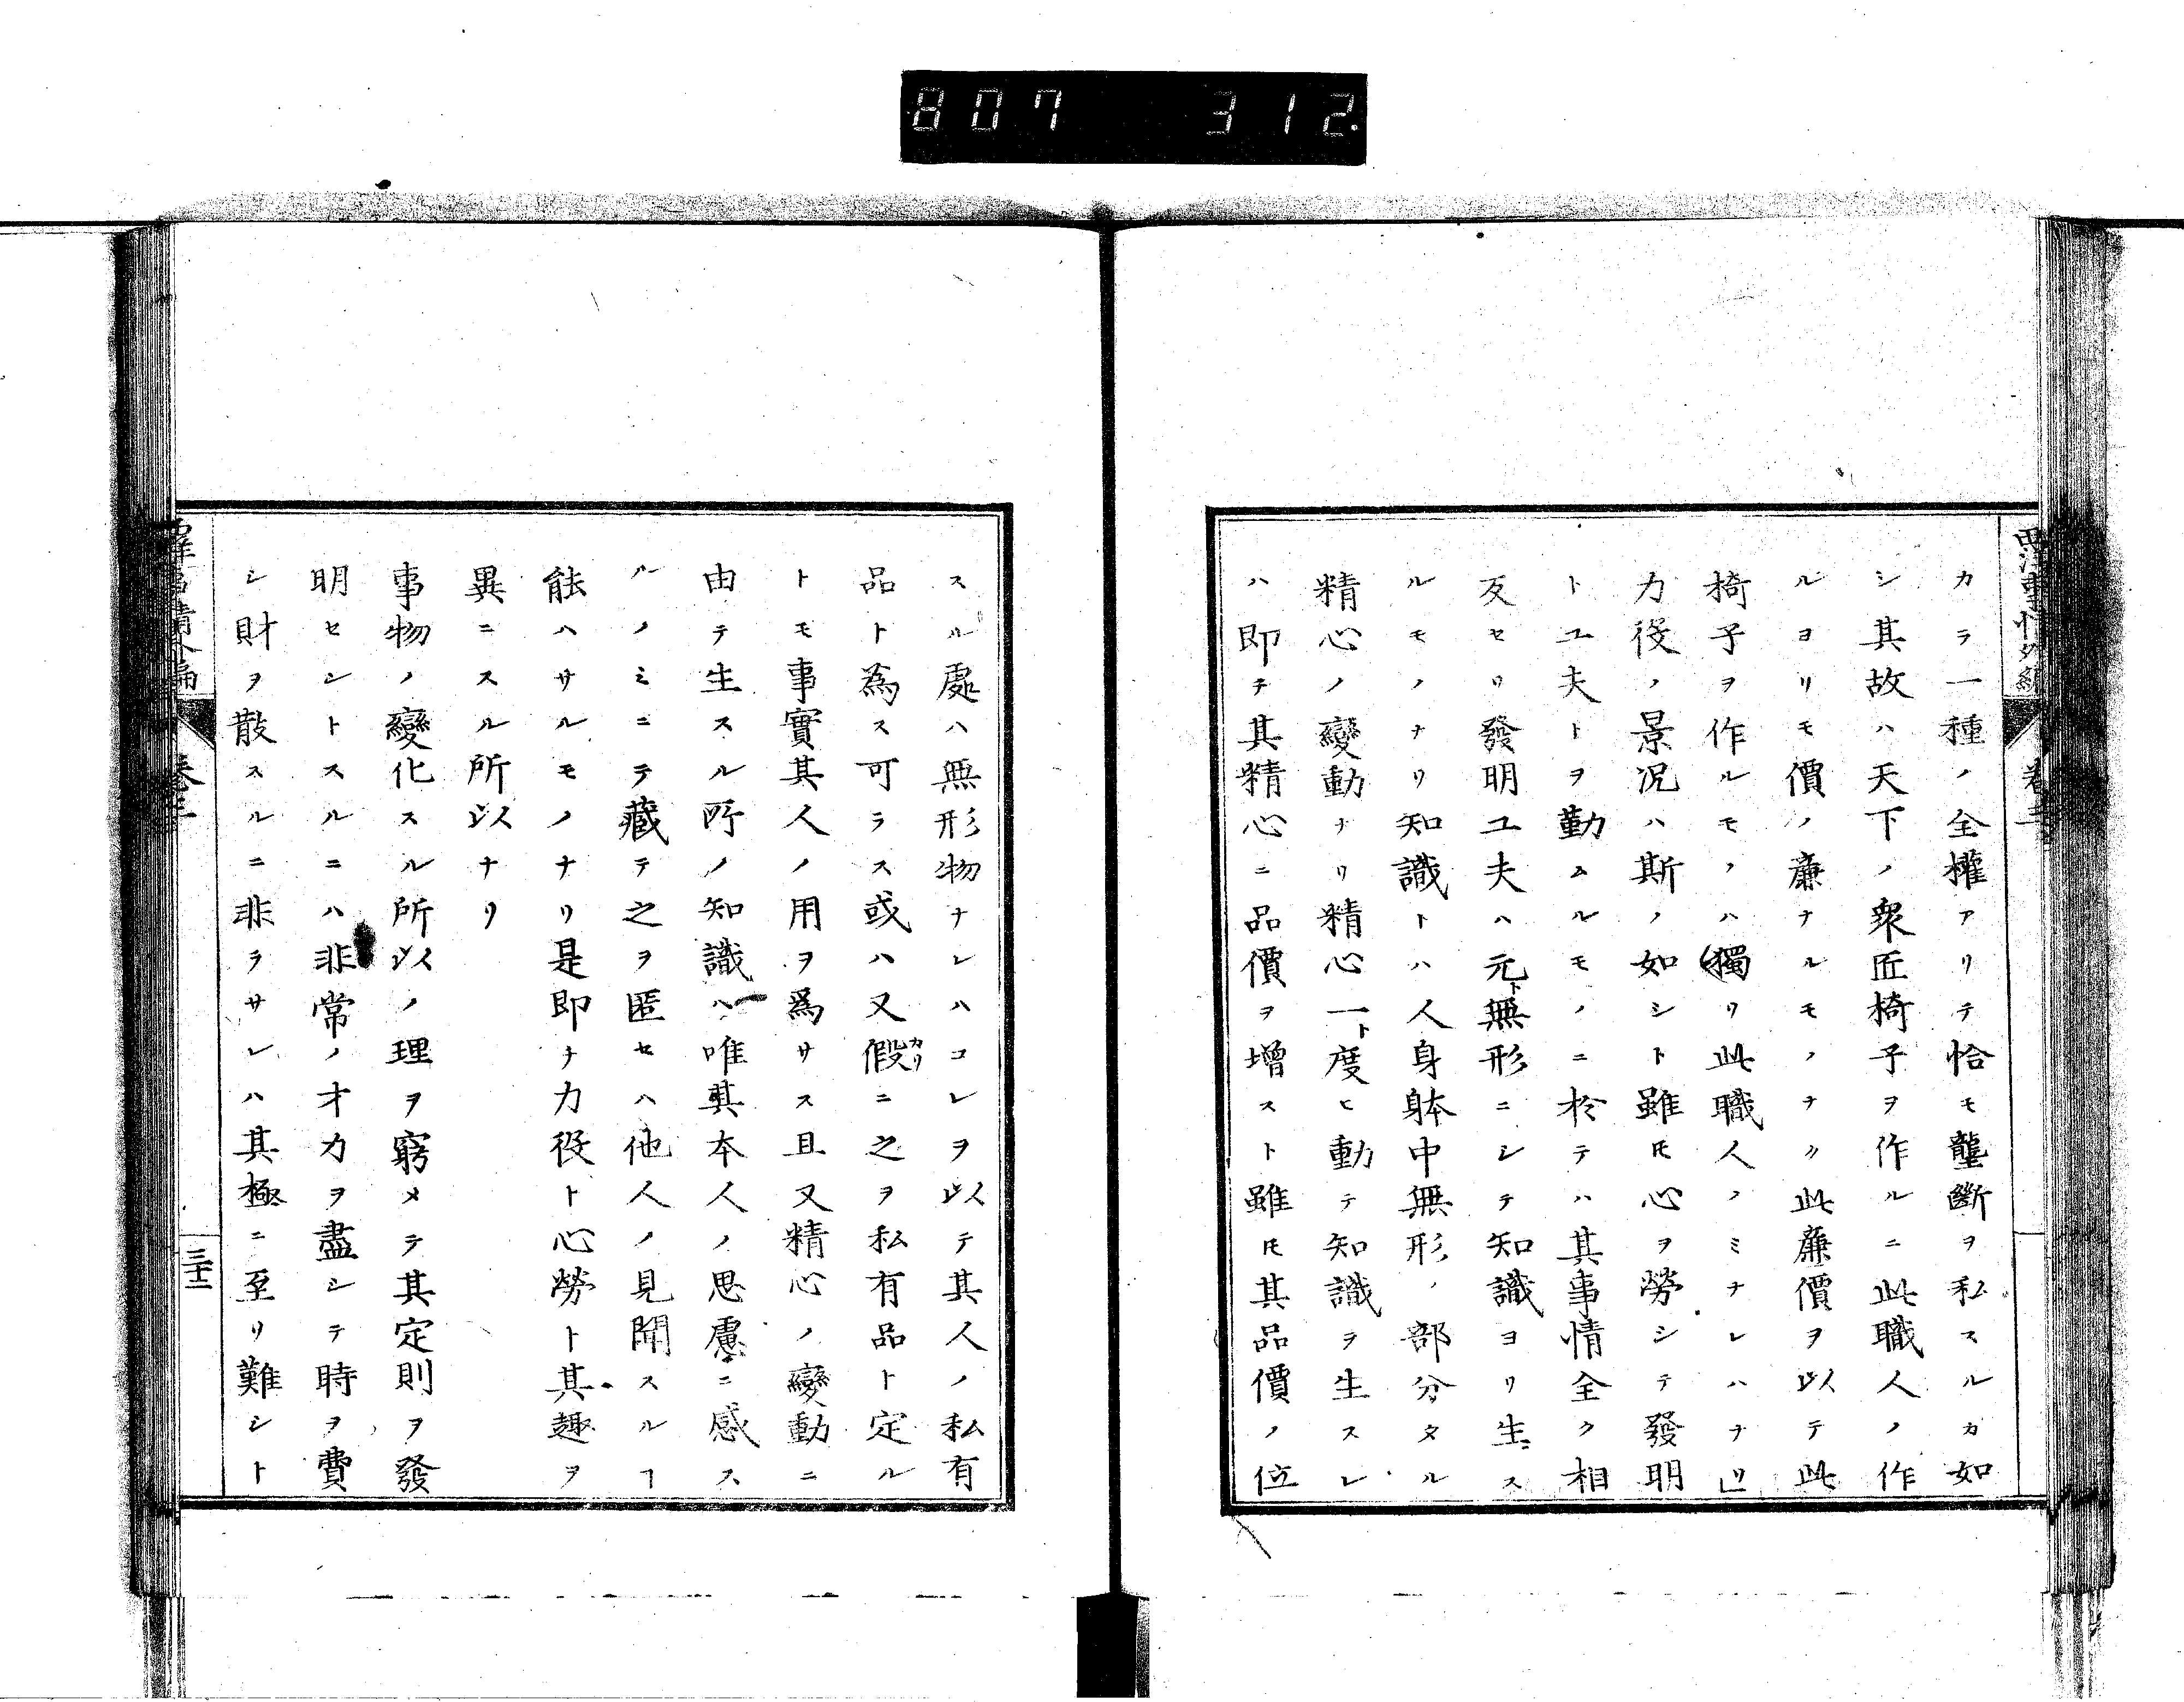 807 312
西洋事情外編 卷之三
カラ一種ノ全權アリテ恰モ壟斷ヲ私スルカ如
シ其故ハ天下ノ衆匠椅子ヲ作ルニ此職人ノ作
ルヨリモ價ノ廉ナルモノナク此廉價ヲ以テ此
椅子ヲ作ルモノハ獨リ此職人ノミナレハナリ凹
力役ノ景况ハ斯ノ如シト雖𪜈心ヲ勞シテ發明
工夫トヲ勤ムルモノニ於テハ其事情全ク相
反セリ發明工夫ハ元ト無形ニシテ知識ヨリ生ス
ルモノナリ知識トハ人身躰中無形ノ部分タル
精心ノ變動ナリ精心一ト度ヒ動テ知識ヲ生スレ
ハ即チ其精心ニ品價ヲ增スト雖𪜈其品價ノ位
スル處ハ無形物ナレハコレヲ以テ其人ノ私有
品ト為ス可ラス或ハ又假カリニ之ヲ私有品ト定ル
トモ事實其人ノ用ヲ爲サス且又精心ノ變動ニ
由テ生スル所ノ知識ハ唯其本人ノ思慮ニ感ス
ルノミニテ藏テ之ヲ匿セハ他人ノ見聞スルヿ
能ハサルモノナリ是即チ力役ト心勞ト其趣ヲ
異ニスル所以ナリ
事物ノ變化スル所以ノ理ヲ窮メテ其定則ヲ發
明セシトスルニハ非常ノ才力ヲ盡シテ時ヲ費
シ財ヲ散スルニ非ラサレハ其極ニ至リ難シト
西洋事情外編 卷之三 三十二